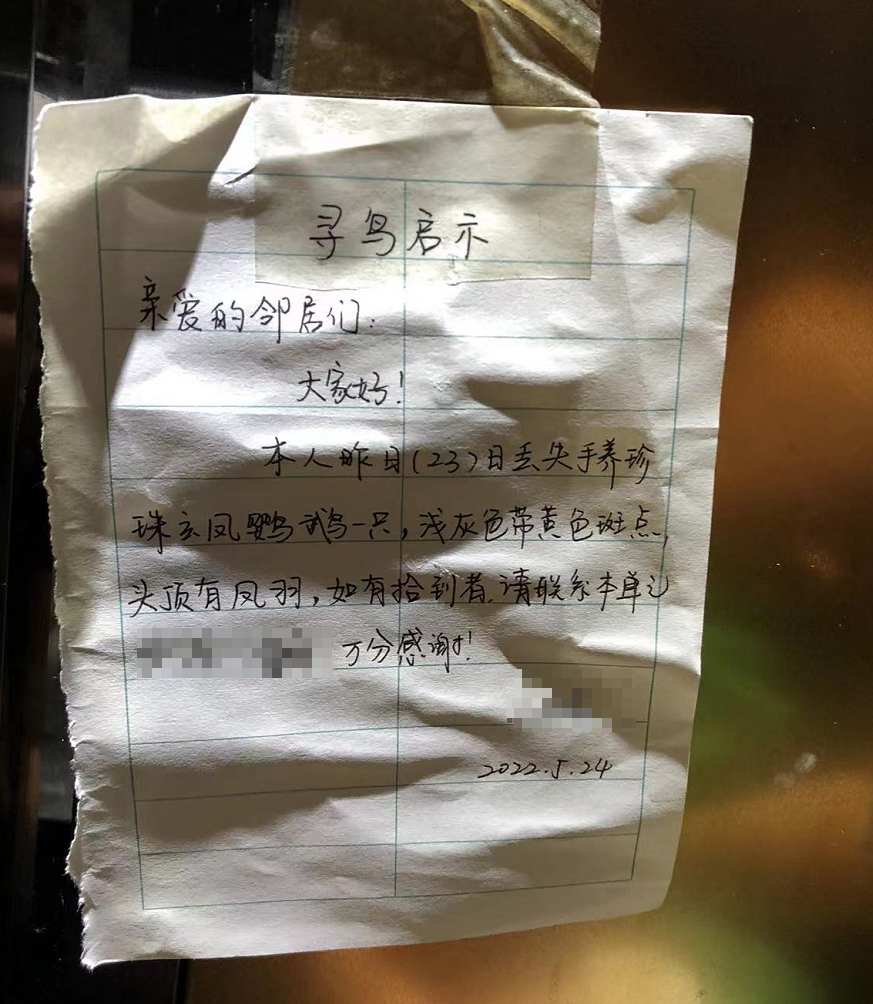 寻鸟启示
亲爱的邻居们：
大家好！
本人昨日（23）日丢失手养珍
珠玄凤鹦鹉一只，浅灰色带黄色斑点，
头顶有凤羽，如有拾到者，请联系本单元
万分感谢！
2022.5.24